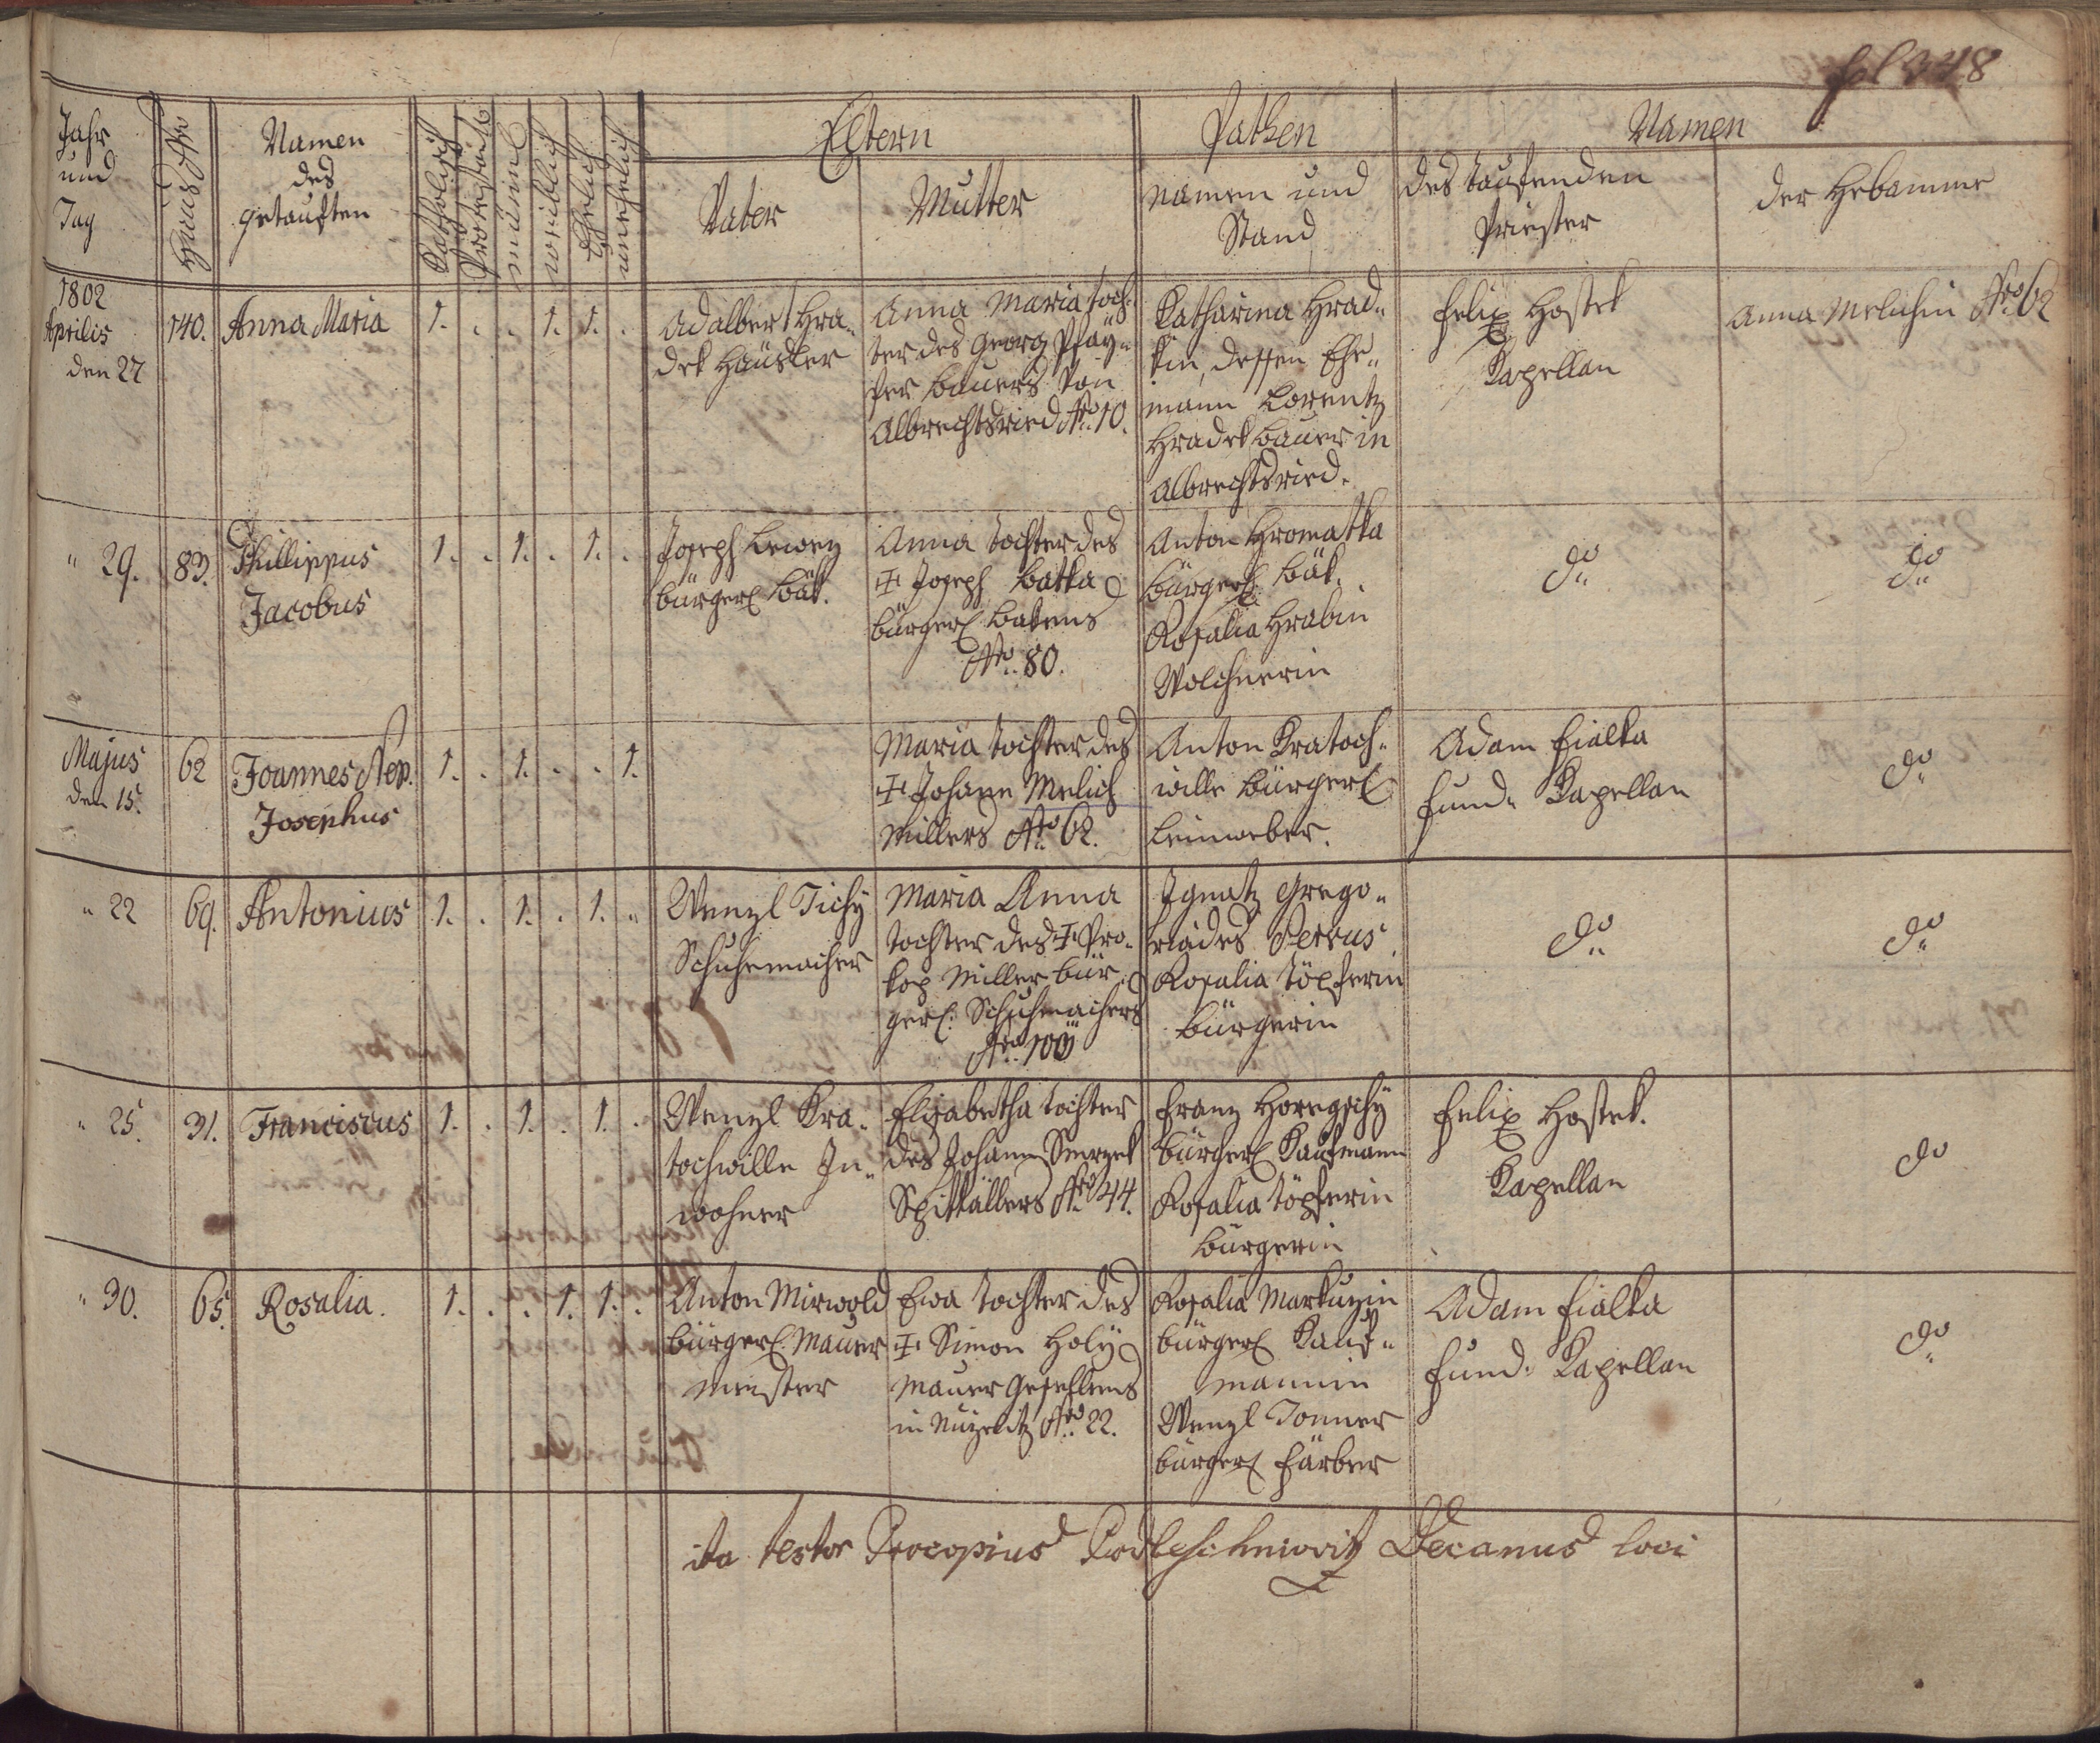 fol 348
Jahr und Tag
Haus Nro
Namen des getauften
Katholisch
Protestant
männl
weiblich
Ehelich
unehelich
Eltern
Vater
Mutter
Pathen
Namen und Stand
Namen
des taufenden Priester
der Hebamme
1802
Aprilis
den 27
140.
Anna Maria
1. . . 1. 1. .
Adalbert Hra-
dek Häusler
Anna Maria toch-
ter des Georg
Bauers von
Albrechtsried Nro 10.
Katharina Hrad-
kin, dessen Ehe-
mann Lorentz
Hradek Bauer in
Albrechtsried.
Felix Hostek
Kapellan
Anna Melichin Nro 62
" 29.
83.
Phillippus
Jacobus
1. . 1. . 1. .
Joseph
bürgerl Bäk.
Anna tochter des
✝ Joseph Batka
bürgerl Bekens
Nro. 80.
Anton Hromatka
bürgerl. Bäk.
Rosalia Hrabin
do
do
Majus
den 15.
62
Joannes Nep.
Josephus
1. . 1. . . 1.
Maria tochter des
✝ Johann Melich
Millers Nro 62.
Anton Kratoch-
wille bürgerl
Leinweber.
Adam Fialka
fund. Kapellan
do
" 22
69.
Antonius
1. . 1. . 1. "
Wenzl Tichÿ
Schuhmacher
Maria Anna
tochter des ✝ Pro-
kop Miller bür-
gerl. Schuhmachers
Nro. 100
Ignatz Grego-
riades
Rosalia Töpferin
bürgerin
do
do
" 25.
31.
Franciscus
1. . 1. . 1. .
Wenzl Kra-
tochwille In-
wohner
Elisabetha tochter
des Johann Smrzek
Nro 44.
Franz
bürgerl Kaufmann
Rosalia Töpferin
bürgerin
Felix Hostek.
Kapellan
do
" 30.
65.
Rosalia.
1. . . 1. 1. .
Anton Mirwold
bürgerl. Maurer
meister
Ewa tochter des
✝ Simon Holÿ
Maurer Gesellens
in Nro. 22.
Rosalia Markuzin
bürgerl Kauf-
mannin
Wenzl Tonner
bürgerl Färber
Adam Fialka
fund. Kapellan
do
ita testor Procopius Decanus loci